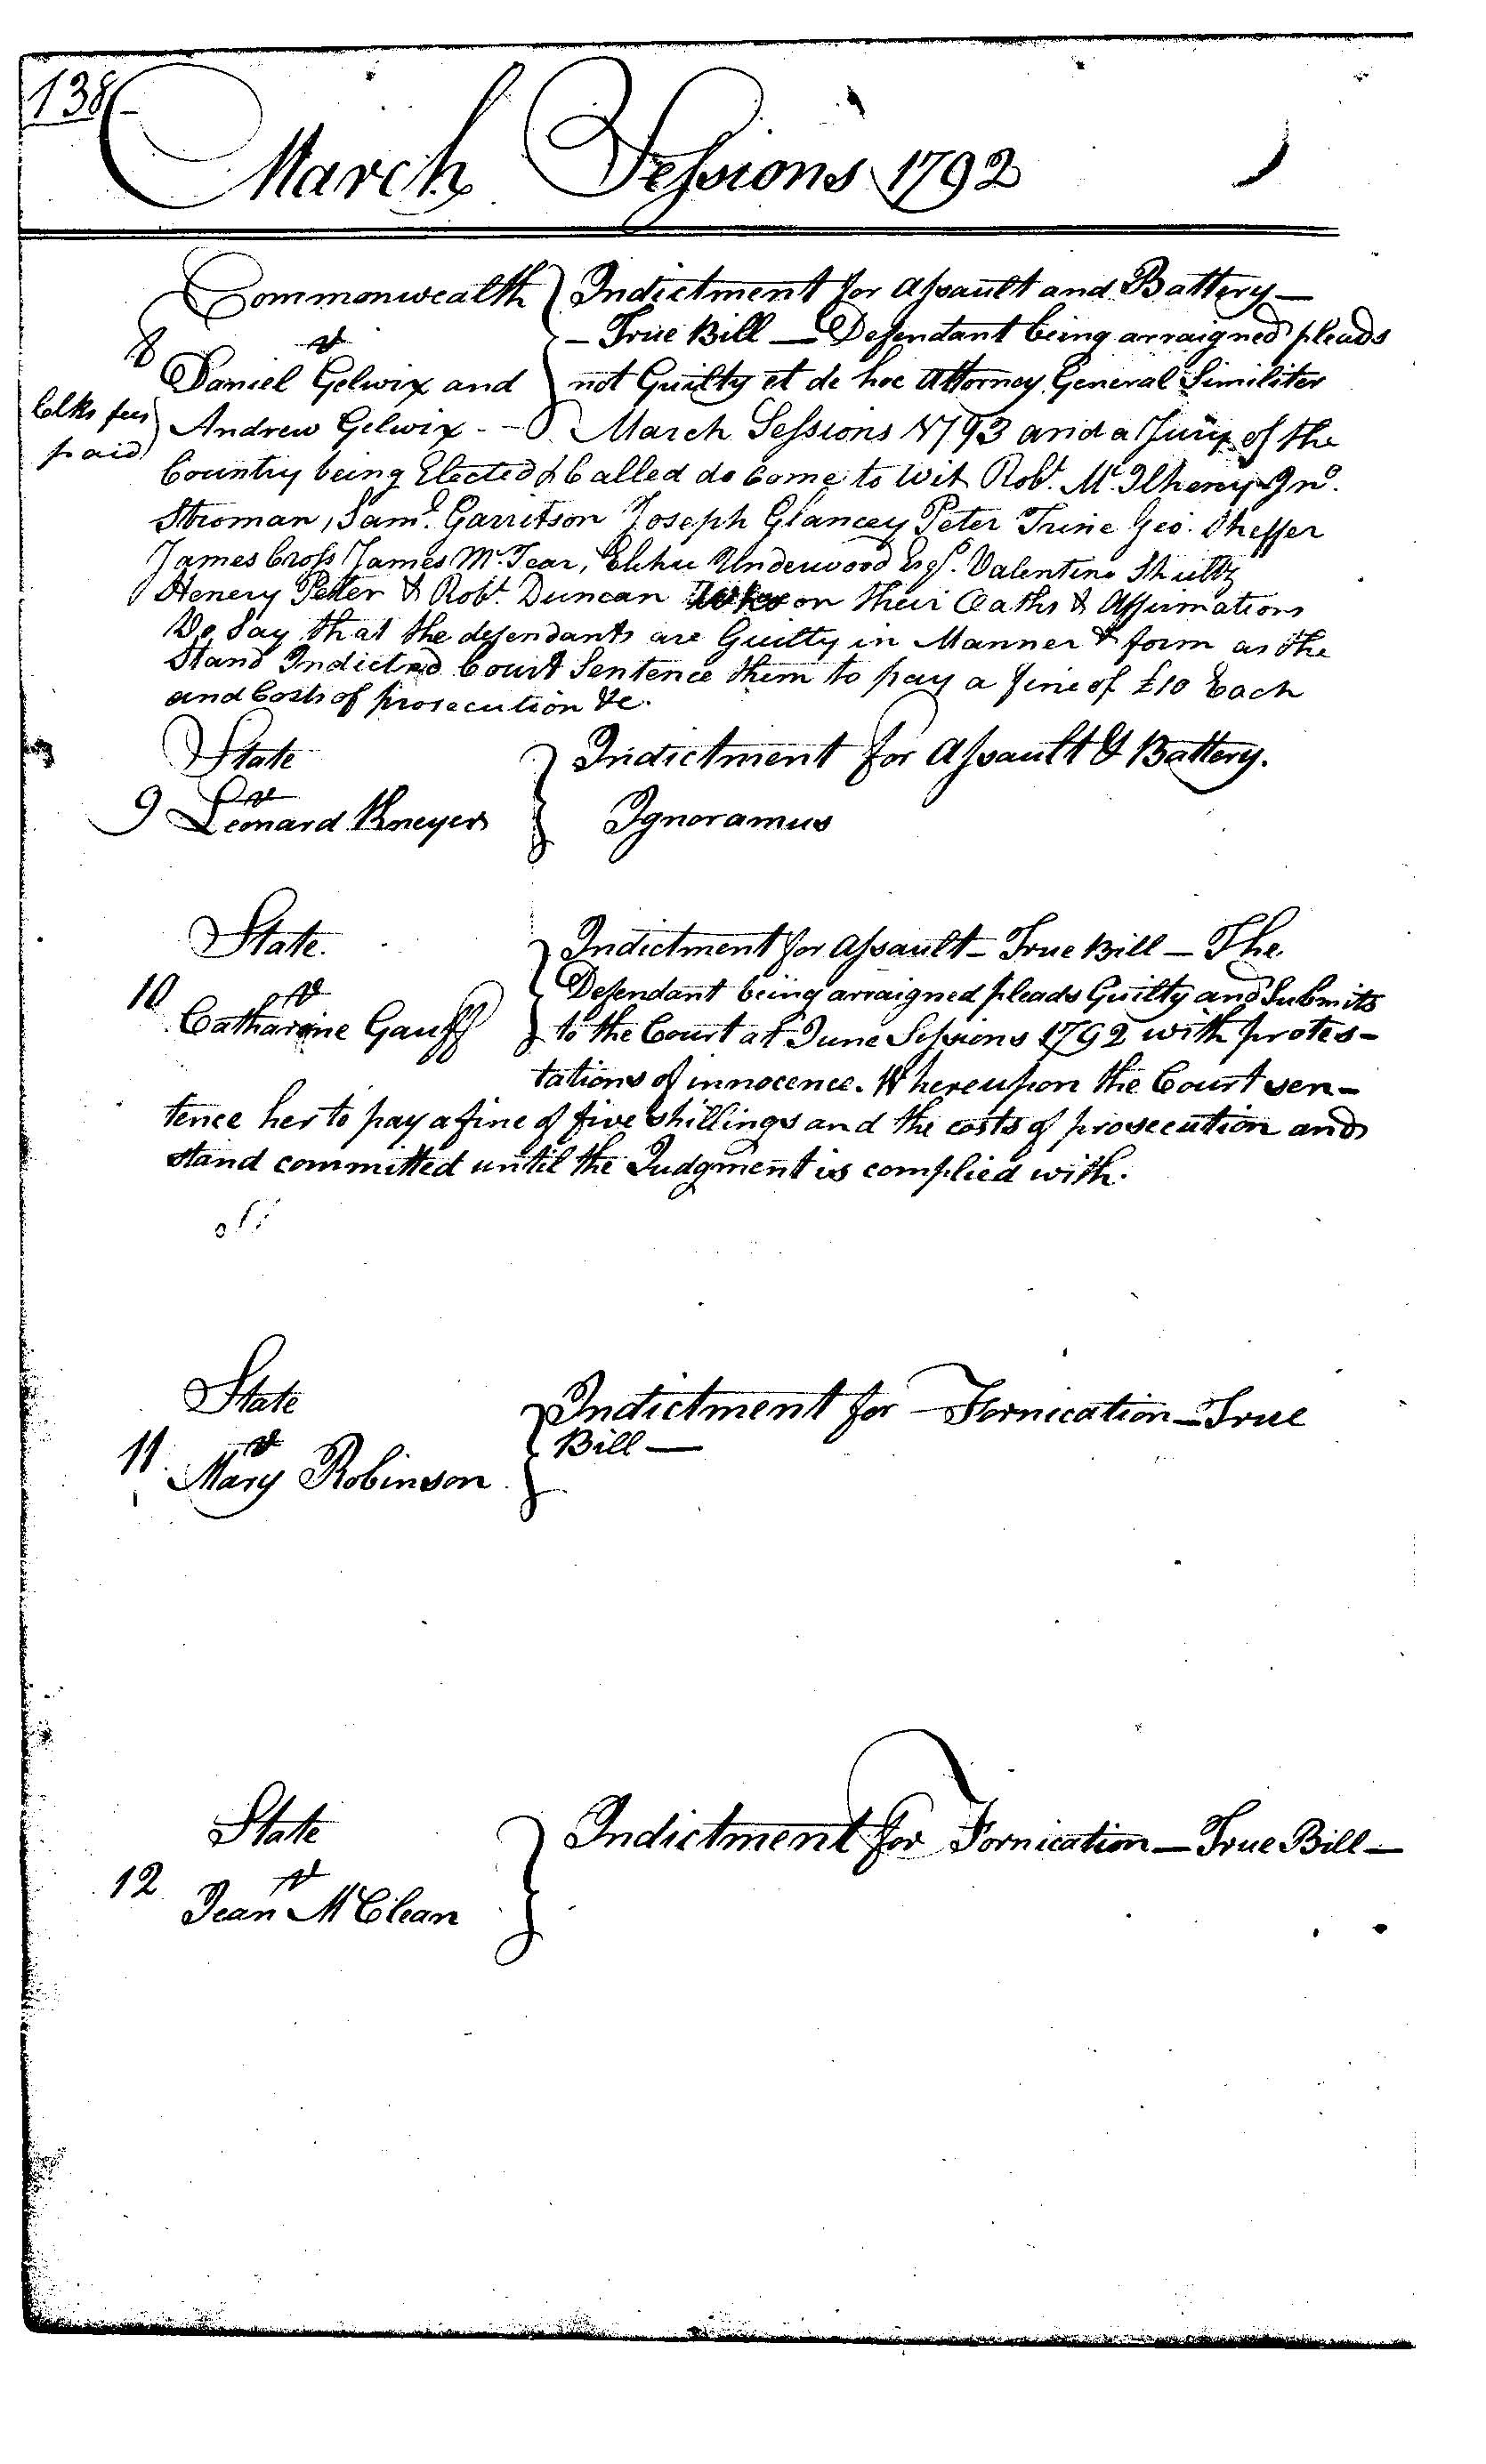 138
March Sessions 1792
Commonwealth } Indictment for Assault and Battery —
8 vs — True Bill — Defendant being arraigned pleads
Daniel Gelwix and not Guilty et de hoc Attorney General Similiter
Clks fees paid
Andrew Gelwix - - March Sessions 1793 and a Jury of the
Country being Elected & Called do Come to wit Robt. Mc.Ilheny Jno.
Stroman, Saml. Garritson Joseph Glancey Peter Trine Geo. Sheffer
James Cross James Mc.Tear, Elihu Underwood Esqr. Valentine Shultz
Henery Petter & Robt. Duncan on their Oaths & Affirmations
Do Say that the defendants are Guilty in Manner & form as the
Stand Indicted Court Sentence them to pay a fine of £10 Each
and Costs of prosecution &c.
State } Indictment for Assault & Battery.
vs
9 Leonard Kneyer Ignoramus
State. } Indictment for Assault — True Bill — The
10 vs Defendant being arraigned pleads Guilty and Submits
Catharine Gauff to the Court at June Sessions 1792 with protes-
tations of innocence. Whereupon the Court sen-
tence her to pay a fine of five shillings and the costs of prosecution and
stand committed until the Judgment is complied with.
State } Indictment for Fornication — True
11 vs Bill —
Mary Robinson
State } Indictment for Fornication — True Bill —
12 vs
Jean McClean